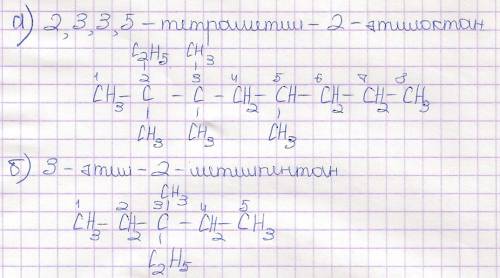 а) 2,3,3,5 – тетраметил – 2 – этилоктан
C2H5 CH3
1 2 3 4 5 6 7 8
CH3 – C – C – CH2 – CH – CH2 – CH2 – CH3
CH3 CH3 CH3
б) 3 – этил – 2 – метилпентан
CH3
1 2 3 4 5
CH3 – CH2 – C – CH2 – CH3
C2H5